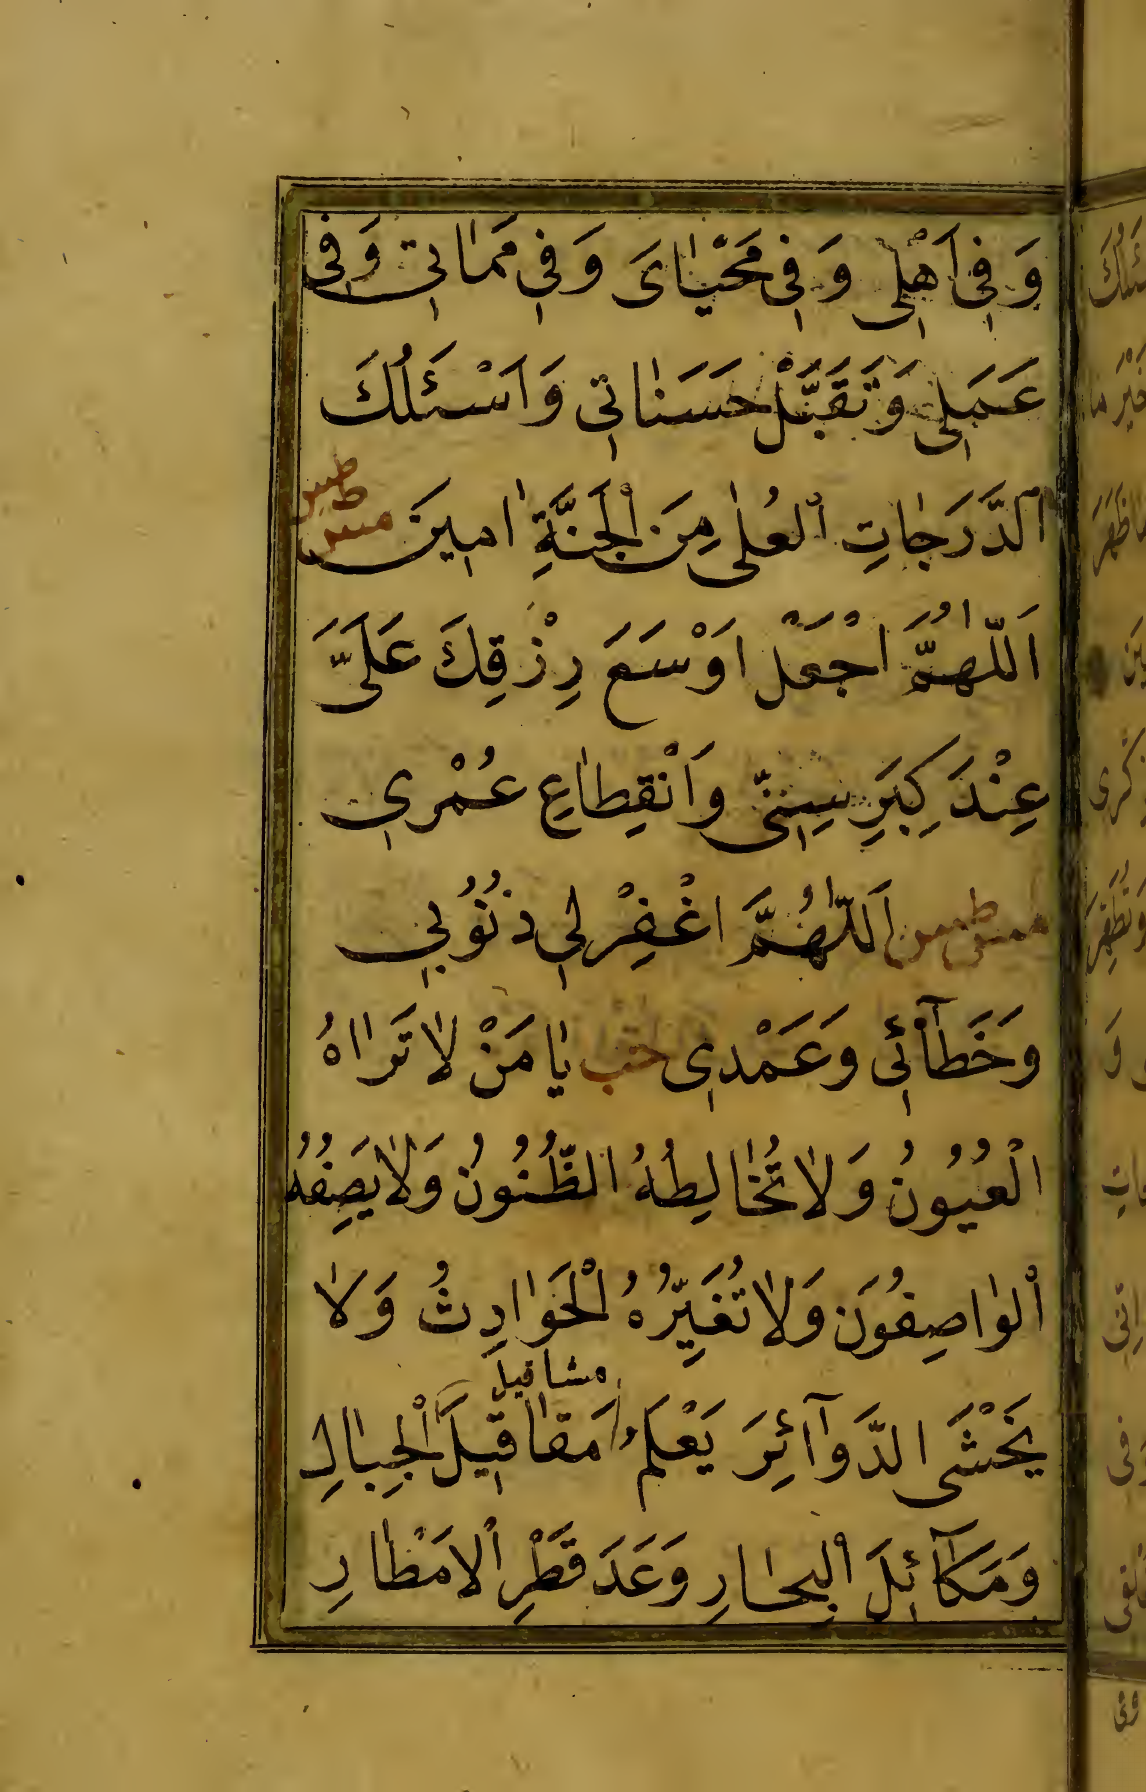 وَفِي اَهْلِي وَفِي مَحْيٰايَ وَفِي مَمٰاتِي وَفِي
عَمَلِي وَتَقَبَّلْ حَسَنٰاتِي وَاَسْئَلُكَ
الدَّرَجٰاتِ الْعُلٰى مِنَ الْجَنَّةِ اٰمِينَ مس ط طس
اَللّٰهُمَّ اجْعَلْ اَوْسَعَ رِزْقِكَ عَلَيَّ
عِنْدَ كِبَرِ سِنِّي وَانْقِطٰاعِ عُمْرِي
مس طس اَللّٰهُمَّ اغْفِرْ لِي ذُنُوبِي
وَخَطَآئِي وَعَمْدِي حب يٰا مَنْ لٰا تَرٰاهُ
الْعُيُونُ وَلٰا تُخٰالِطُهُ الظُّنُونُ وَلٰا يَصِفُهُ
الْوٰاصِفُونَ وَلٰا تُغَيِّرُهُ الْحَوٰادِثُ وَلٰا
مثاقيل
يَخْشَى الدَّوَآئِرَ يَعْلَمُ مَقٰاقِيلَ الْجِبٰالِ
وَمَكَآئِلَ الْبِحٰارِ وَعَدَ قَطْرِ الْاَمْطٰارِ